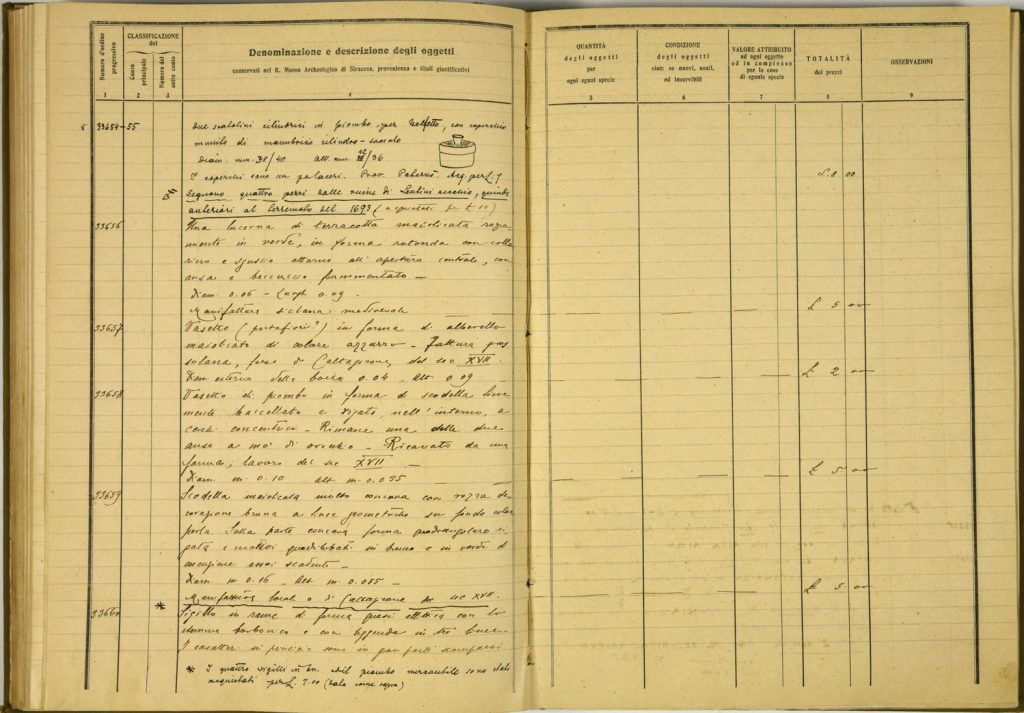 Numero d'ordine progressivo
CLASSIFICAZIONE del
Conto principale
Numero del sotto conto
Denominazione e descrizione degli oggetti
conservati nel R. Museo Archeologico di Siracusa, provenienza e titoli giustificativi
1 2 3 4
33654-55 due scatolini cilindrici in piombo per belletto, con coperchio
munito di manubrio cilindro-
diam. mm. 38/40 alt. mm. /36
I coperchi sono un po' laceri. Prov. Paternò. Acq. per L. 8
Seguono quattro pezzi dalle ruine di Lentini vecchio, quindi
anteriori al terremoto del 1693 (acquistati per £
33656 Una lucerna di terracotta maiolicata rozza
mente in verde, in forma rotonda con colla
rino e sguscio attorno all'apertura centrale, con
ansa e beccuccio frammentato —
Diam. 0.06 — Lungh. 0.09 —
Manifattura siciliana medioevale —
33657 Vasetto (portafiori?) in forma di alberello
maiolicato di colore azzurro — Fattura pae
sana, forse di Caltagirone, del sec XVII.
Diam esterno della bocca 0.04 — Alt 0.09 —
33658 Vasetto di piombo in forma di scodella lieve
mente baccellato e rigato, nell'interno, a
cerchi concentrici — Rimane una delle due
anse a mo' di orecchio — Ricavato da una
forma; lavoro del sec XVII —
Diam. m. 0.10 alt m. 0.035
33659 Scodella maiolicata molto concava con rozza de
corazione bruna a linee geometriche su fondo
Sulla parte concava forma quadrangolare
e motivi quadrilobati in bruno e in verde di
assai scadente —
Diam m 0.16 — Alt m. 0.055 —
Manifattura locale o di Caltagirone del sec XVII.
33660 * Sigillo in rame di forma quasi ellittica con lo
stemma borbonico e con leggenda in tre linee.
I caratteri in principio sono in gran parte scomparsi
* I quattro sigilli in br. del piombo mercantile sono stati
acquistati per L. 7.00 (
QUANTITÀ
degli oggetti
per
ogni ugual specie
CONDIZIONE
degli oggetti
cioè: se nuovi, usati,
od inservibili
VALORE ATTRIBUITO
ad ogni oggetto
od in complesso
per le cose
di eguale specie
TOTALITÀ
dei prezzi
OSSERVAZIONI
5 6 7 8 9
L. 8 00
£ 5 00
£ 2 00
£ 5 00
£ 5 00